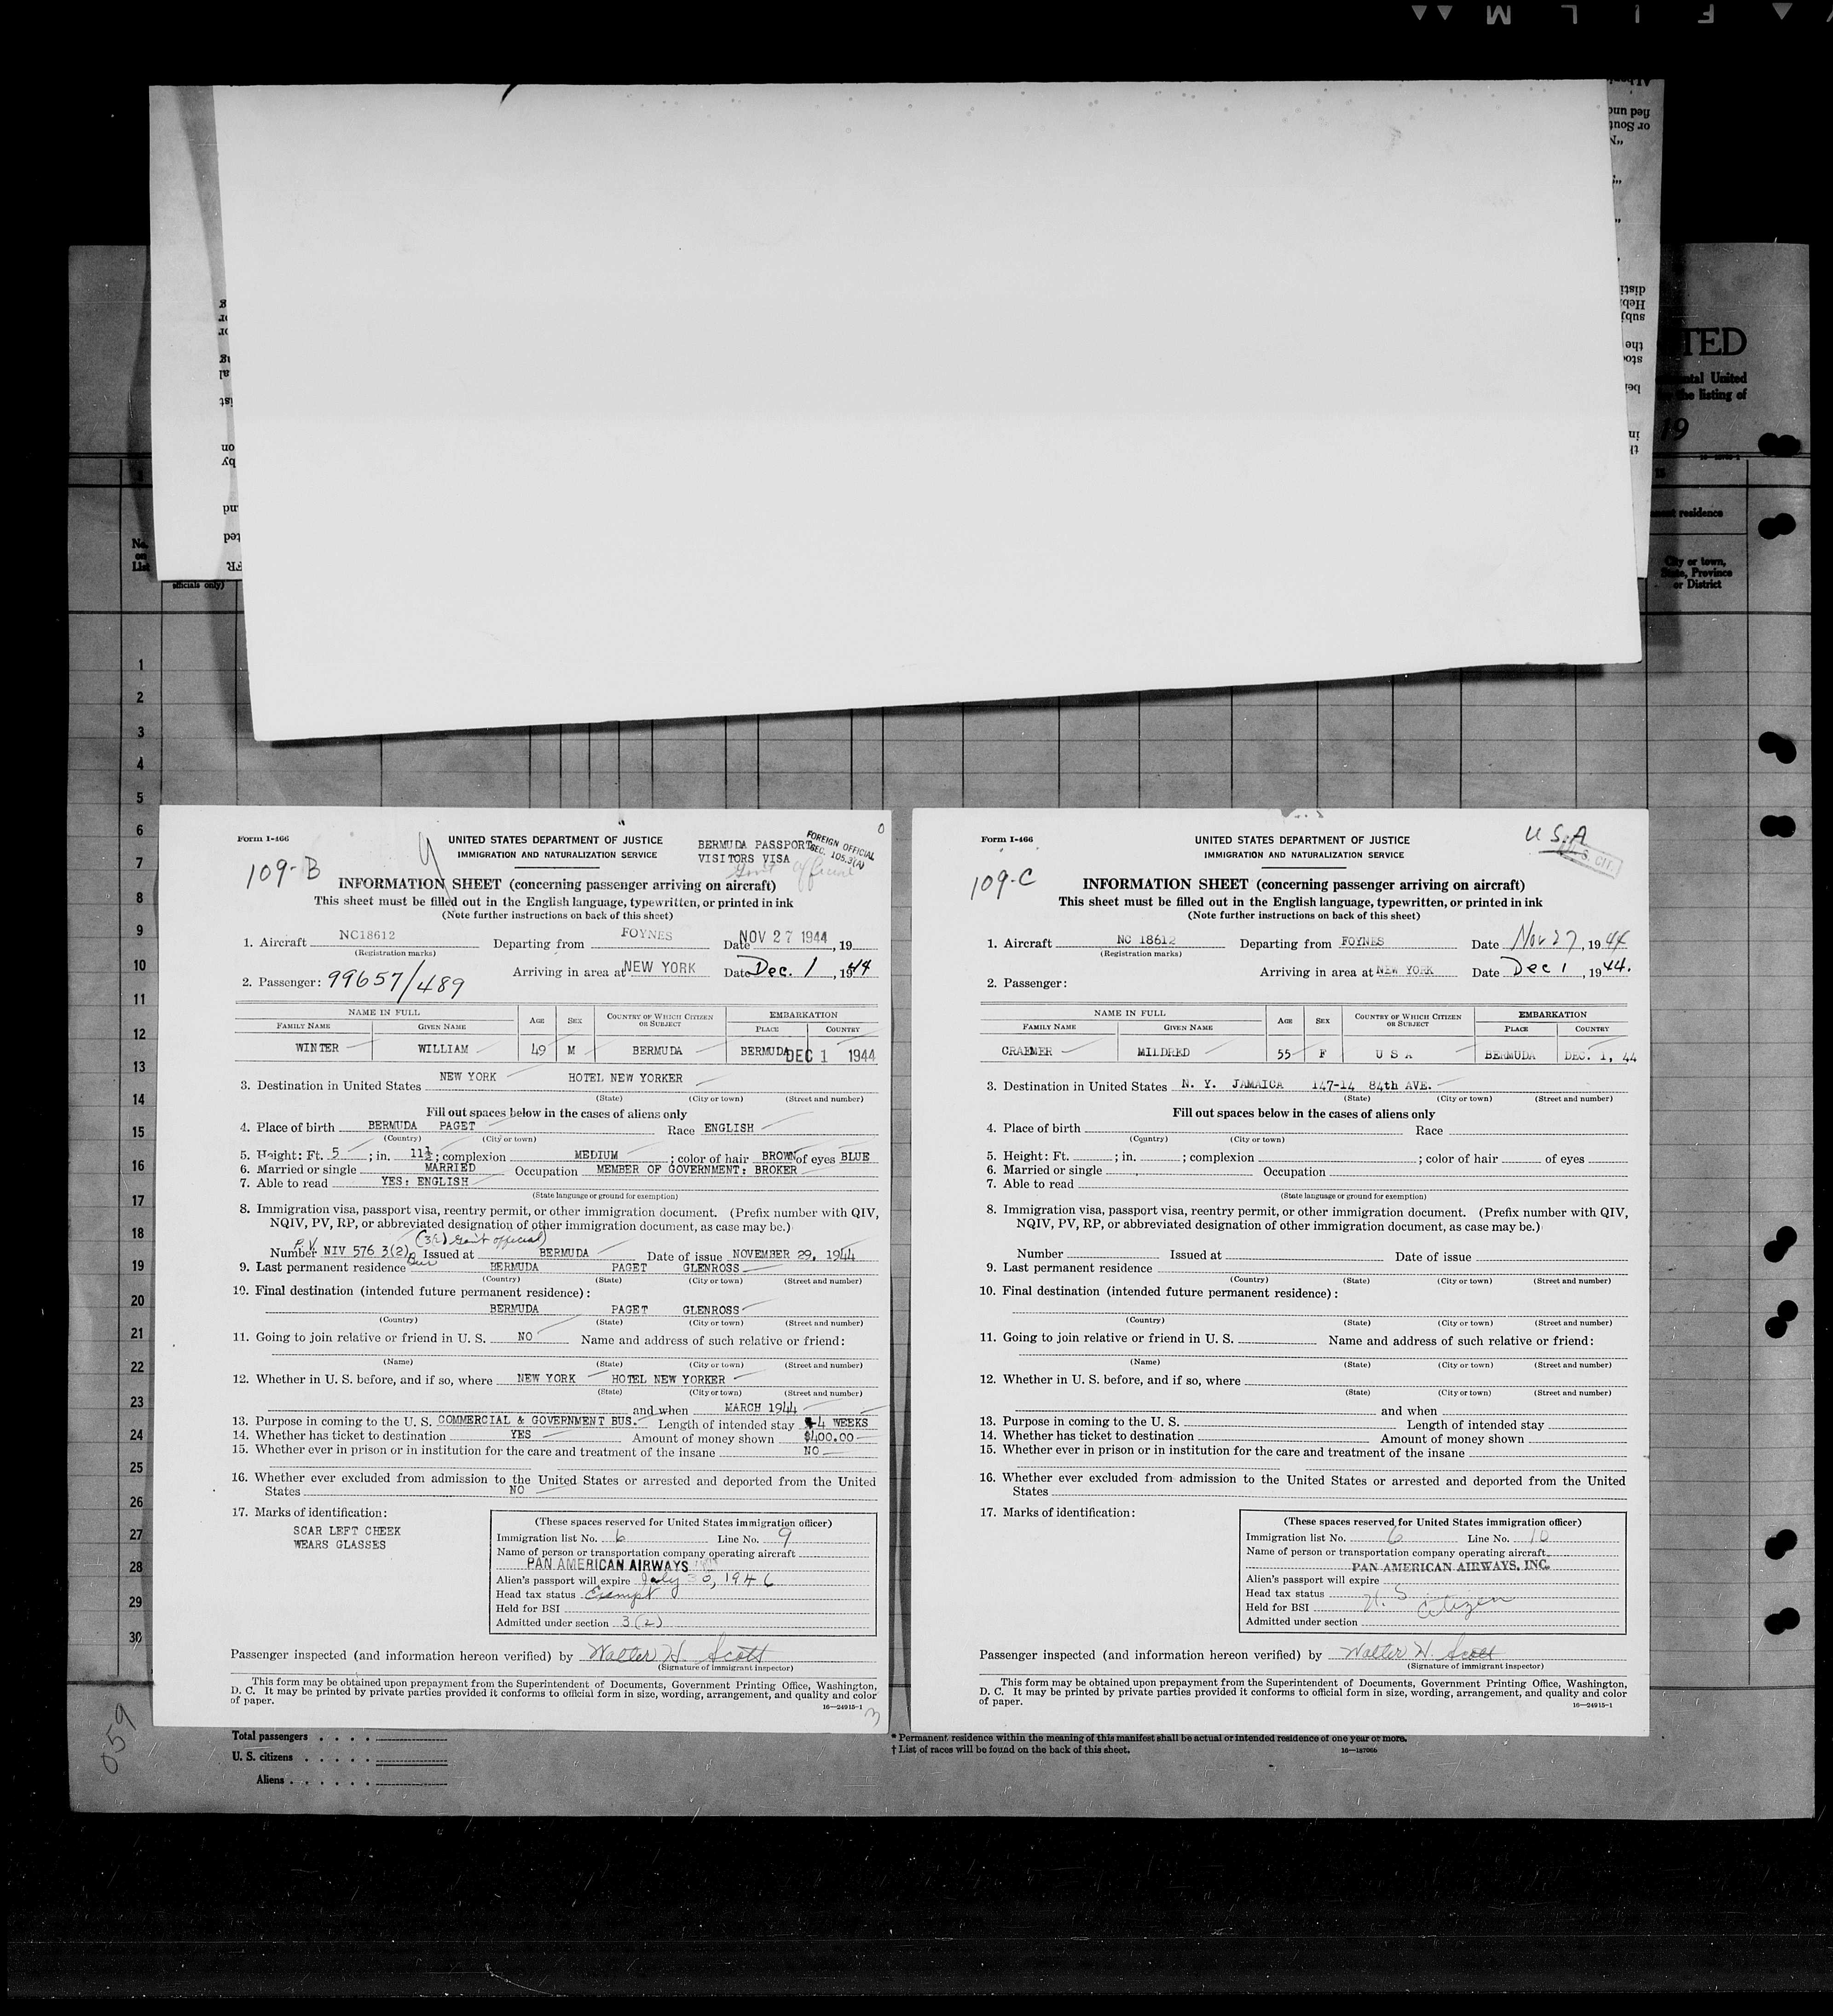 F I L M
TED
ntal United
the listing of
19
No.
on
List
officials only)
residence
City or town,
State, Province
or District
1
2
3
4
5
6
7
8
9
10
11
12
13
14
15
16
17
18
19
20
21
22
23
24
25
26
27
28
29
30
Form I-466
UNITED STATES DEPARTMENT OF JUSTICE
IMMIGRATION AND NATURALIZATION SERVICE
BERMUDA PASSPORT
VISITORS VISA
FOREIGN OFFICIAL
SEC. 105.3(A)
Govt official
109-B
INFORMATION SHEET (concerning passenger arriving on aircraft)
This sheet must be filled out in the English language, typewritten, or printed in ink
(Note further instructions on back of this sheet)
1. Aircraft NC18612 Departing from FOYNES Date NOV 27 1944, 19
(Registration marks)
Arriving in area at NEW YORK Date Dec. 1, 1944
2. Passenger: 99657/489
NAME IN FULL AGE SEX COUNTRY OF WHICH CITIZEN OR SUBJECT EMBARKATION
FAMILY NAME GIVEN NAME PLACE COUNTRY
WINTER WILLIAM 49 M BERMUDA BERMUDA DEC 1 1944
3. Destination in United States NEW YORK HOTEL NEW YORKER
(State) (City or town) (Street and number)
Fill out spaces below in the cases of aliens only
4. Place of birth BERMUDA PAGET Race ENGLISH
(Country) (City or town)
5. Height: Ft. 5; in. 11½; complexion MEDIUM; color of hair BROWN of eyes BLUE
6. Married or single MARRIED Occupation MEMBER OF GOVERNMENT: BROKER
7. Able to read YES: ENGLISH
(State language or ground for exemption)
8. Immigration visa, passport visa, reentry permit, or other immigration document. (Prefix number with QIV,
NQIV, PV, RP, or abbreviated designation of other immigration document, as case may be.)
P.V. (3(1) Gov't official)
Number NIV 576 3(2) Issued at BERMUDA Date of issue NOVEMBER 29, 1944
9. Last permanent residence BERMUDA PAGET GLENROSS
(Country) (State) (City or town) (Street and number)
10. Final destination (intended future permanent residence):
BERMUDA PAGET GLENROSS
(Country) (State) (City or town) (Street and number)
11. Going to join relative or friend in U. S. NO Name and address of such relative or friend:
(Name) (State) (City or town) (Street and number)
12. Whether in U. S. before, and if so, where NEW YORK HOTEL NEW YORKER
(State) (City or town) (Street and number)
and when MARCH 1944
13. Purpose in coming to the U. S. COMMERCIAL & GOVERNMENT BUS. Length of intended stay 4 WEEKS
14. Whether has ticket to destination YES Amount of money shown $400.00
15. Whether ever in prison or in institution for the care and treatment of the insane NO
16. Whether ever excluded from admission to the United States or arrested and deported from the United
States NO
17. Marks of identification:
SCAR LEFT CHEEK
WEARS GLASSES
(These spaces reserved for United States immigration officer)
Immigration list No. 6 Line No. 9
Name of person or transportation company operating aircraft
PAN AMERICAN AIRWAYS
Alien's passport will expire July 30, 1946
Head tax status Exempt
Held for BSI
Admitted under section 3(2)
Passenger inspected (and information hereon verified) by Walter H. Scott
(Signature of immigrant inspector)
This form may be obtained upon prepayment from the Superintendent of Documents, Government Printing Office, Washington,
D. C. It may be printed by private parties provided it conforms to official form in size, wording, arrangement, and quality and color
of paper.
16—24915-1
Form I-466
UNITED STATES DEPARTMENT OF JUSTICE
IMMIGRATION AND NATURALIZATION SERVICE
U S A
U. S. CIT.
109-C
INFORMATION SHEET (concerning passenger arriving on aircraft)
This sheet must be filled out in the English language, typewritten, or printed in ink
(Note further instructions on back of this sheet)
1. Aircraft NC 18612 Departing from FOYNES Date Nov 27, 1944
(Registration marks)
Arriving in area at NEW YORK Date Dec 1, 1944.
2. Passenger:
NAME IN FULL AGE SEX COUNTRY OF WHICH CITIZEN OR SUBJECT EMBARKATION
FAMILY NAME GIVEN NAME PLACE COUNTRY
CRAEMER MILDRED 55 F U S A BERMUDA DEC. 1, 44
3. Destination in United States N. Y. JAMAICA 147-14 84th AVE.
(State) (City or town) (Street and number)
Fill out spaces below in the cases of aliens only
4. Place of birth Race
(Country) (City or town)
5. Height: Ft. ; in. ; complexion ; color of hair of eyes
6. Married or single Occupation
7. Able to read
(State language or ground for exemption)
8. Immigration visa, passport visa, reentry permit, or other immigration document. (Prefix number with QIV,
NQIV, PV, RP, or abbreviated designation of other immigration document, as case may be.)
Number Issued at Date of issue
9. Last permanent residence
(Country) (State) (City or town) (Street and number)
10. Final destination (intended future permanent residence):
(Country) (State) (City or town) (Street and number)
11. Going to join relative or friend in U. S. Name and address of such relative or friend:
(Name) (State) (City or town) (Street and number)
12. Whether in U. S. before, and if so, where
(State) (City or town) (Street and number)
and when
13. Purpose in coming to the U. S. Length of intended stay
14. Whether has ticket to destination Amount of money shown
15. Whether ever in prison or in institution for the care and treatment of the insane
16. Whether ever excluded from admission to the United States or arrested and deported from the United
States
17. Marks of identification:
(These spaces reserved for United States immigration officer)
Immigration list No. 6 Line No. 10
Name of person or transportation company operating aircraft
PAN AMERICAN AIRWAYS, INC.
Alien's passport will expire
Head tax status U. S.
Held for BSI Citizen
Admitted under section
Passenger inspected (and information hereon verified) by Walter H. Scott
(Signature of immigrant inspector)
This form may be obtained upon prepayment from the Superintendent of Documents, Government Printing Office, Washington,
D. C. It may be printed by private parties provided it conforms to official form in size, wording, arrangement, and quality and color
of paper.
16—24915-1
059
Total passengers
U. S. citizens
Aliens
* Permanent residence within the meaning of this manifest shall be actual or intended residence of one year or more.
† List of races will be found on the back of this sheet.